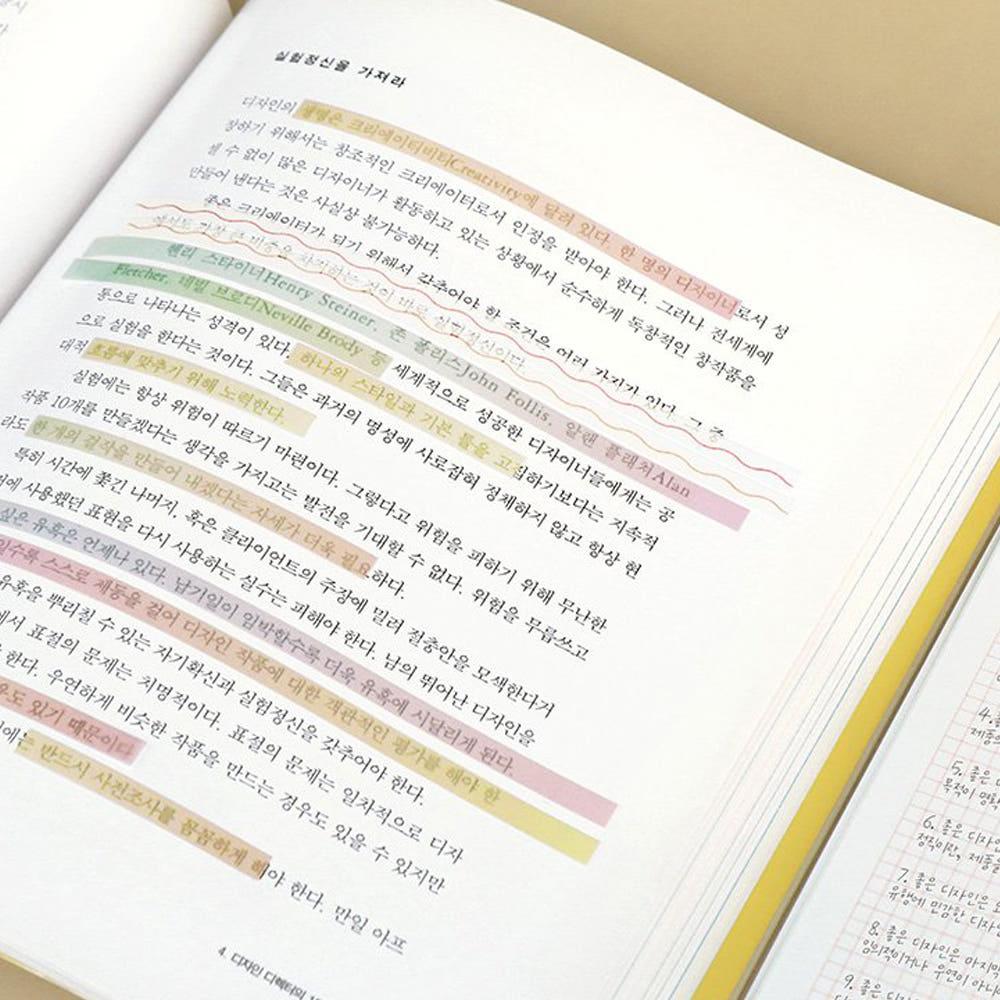 실험정신을 가져라
디자인의 생명은 크리에이티비티Creativity에 달려 있다. 한 명의 디자이너로서 성
장하기 위해서는 창조적인 크리에이터로서 인정을 받아야 한다. 그러나 전세계에
셀 수 없이 많은 디자이너가 활동하고 있는 상황에서 순수하게 독창적인 창작품을
만들어 낸다는 것은 사실상 불가능하다.
좋은 크리에이터가 되기 위해서 갖추어야 할 조건은 여러 가지가 있다. 그 중
에서도 가장 큰 비중을 차지하는 것이 바로 실험정신이다.
헨리 스타이너Henry Steiner, 존 폴리스John Follis, 알랜 플래처Alan
Fletcher, 네빌 브로디Neville Brody 등 세계적으로 성공한 디자이너들에게는 공
통으로 나타나는 성격이 있다. 하나의 스타일과 기본 틀을 고집하기보다는 지속적
으로 실험을 한다는 것이다. 그들은 과거의 명성에 사로잡혀 정체하지 않고 항상 현
대적 흐름에 맞추기 위해 노력한다.
실험에는 항상 위험이 따르기 마련이다. 그렇다고 위험을 피하기 위해 무난한
작품 10개를 만들겠다는 생각을 가지고는 발전을 기대할 수 없다. 위험을 무릅쓰고
라도 한 개의 걸작을 만들어 내겠다는 자세가 더욱 필요하다.
특히 시간에 쫓긴 나머지, 혹은 클라이언트의 주장에 밀려 절충안을 모색한다거
에 사용했던 표현을 다시 사용하는 실수는 피해야 한다. 남의 뛰어난 디자인을
싶은 유혹은 언제나 있다. 납기일이 임박할수록 더욱 유혹에 시달리게 된다.
일수록 스스로 제동을 걸어 디자인 작품에 대한 객관적인 평가를 해야 한
유혹을 뿌리칠 수 있는 자기확신과 실험정신을 갖추어야 한다.
에서 표절의 문제는 치명적이다. 표절의 문제는 일차적으로 디자
한다. 우연하게 비슷한 작품을 만드는 경우도 있을 수 있지만
우도 있기 때문이다.
에는 반드시 사전조사를 꼼꼼하게 해야 한다. 만일 아프
4. 디자인 디렉터의
4. 좋은
제품을
5. 좋은 디
목적이 명확
6. 좋은 디자인
정직이란, 제품을
7. 좋은 디자인은
유행에 민감한 디자인
8. 좋은 디자인은 마지막
임의적이거나 우연이 아니
9. 좋은 디자인